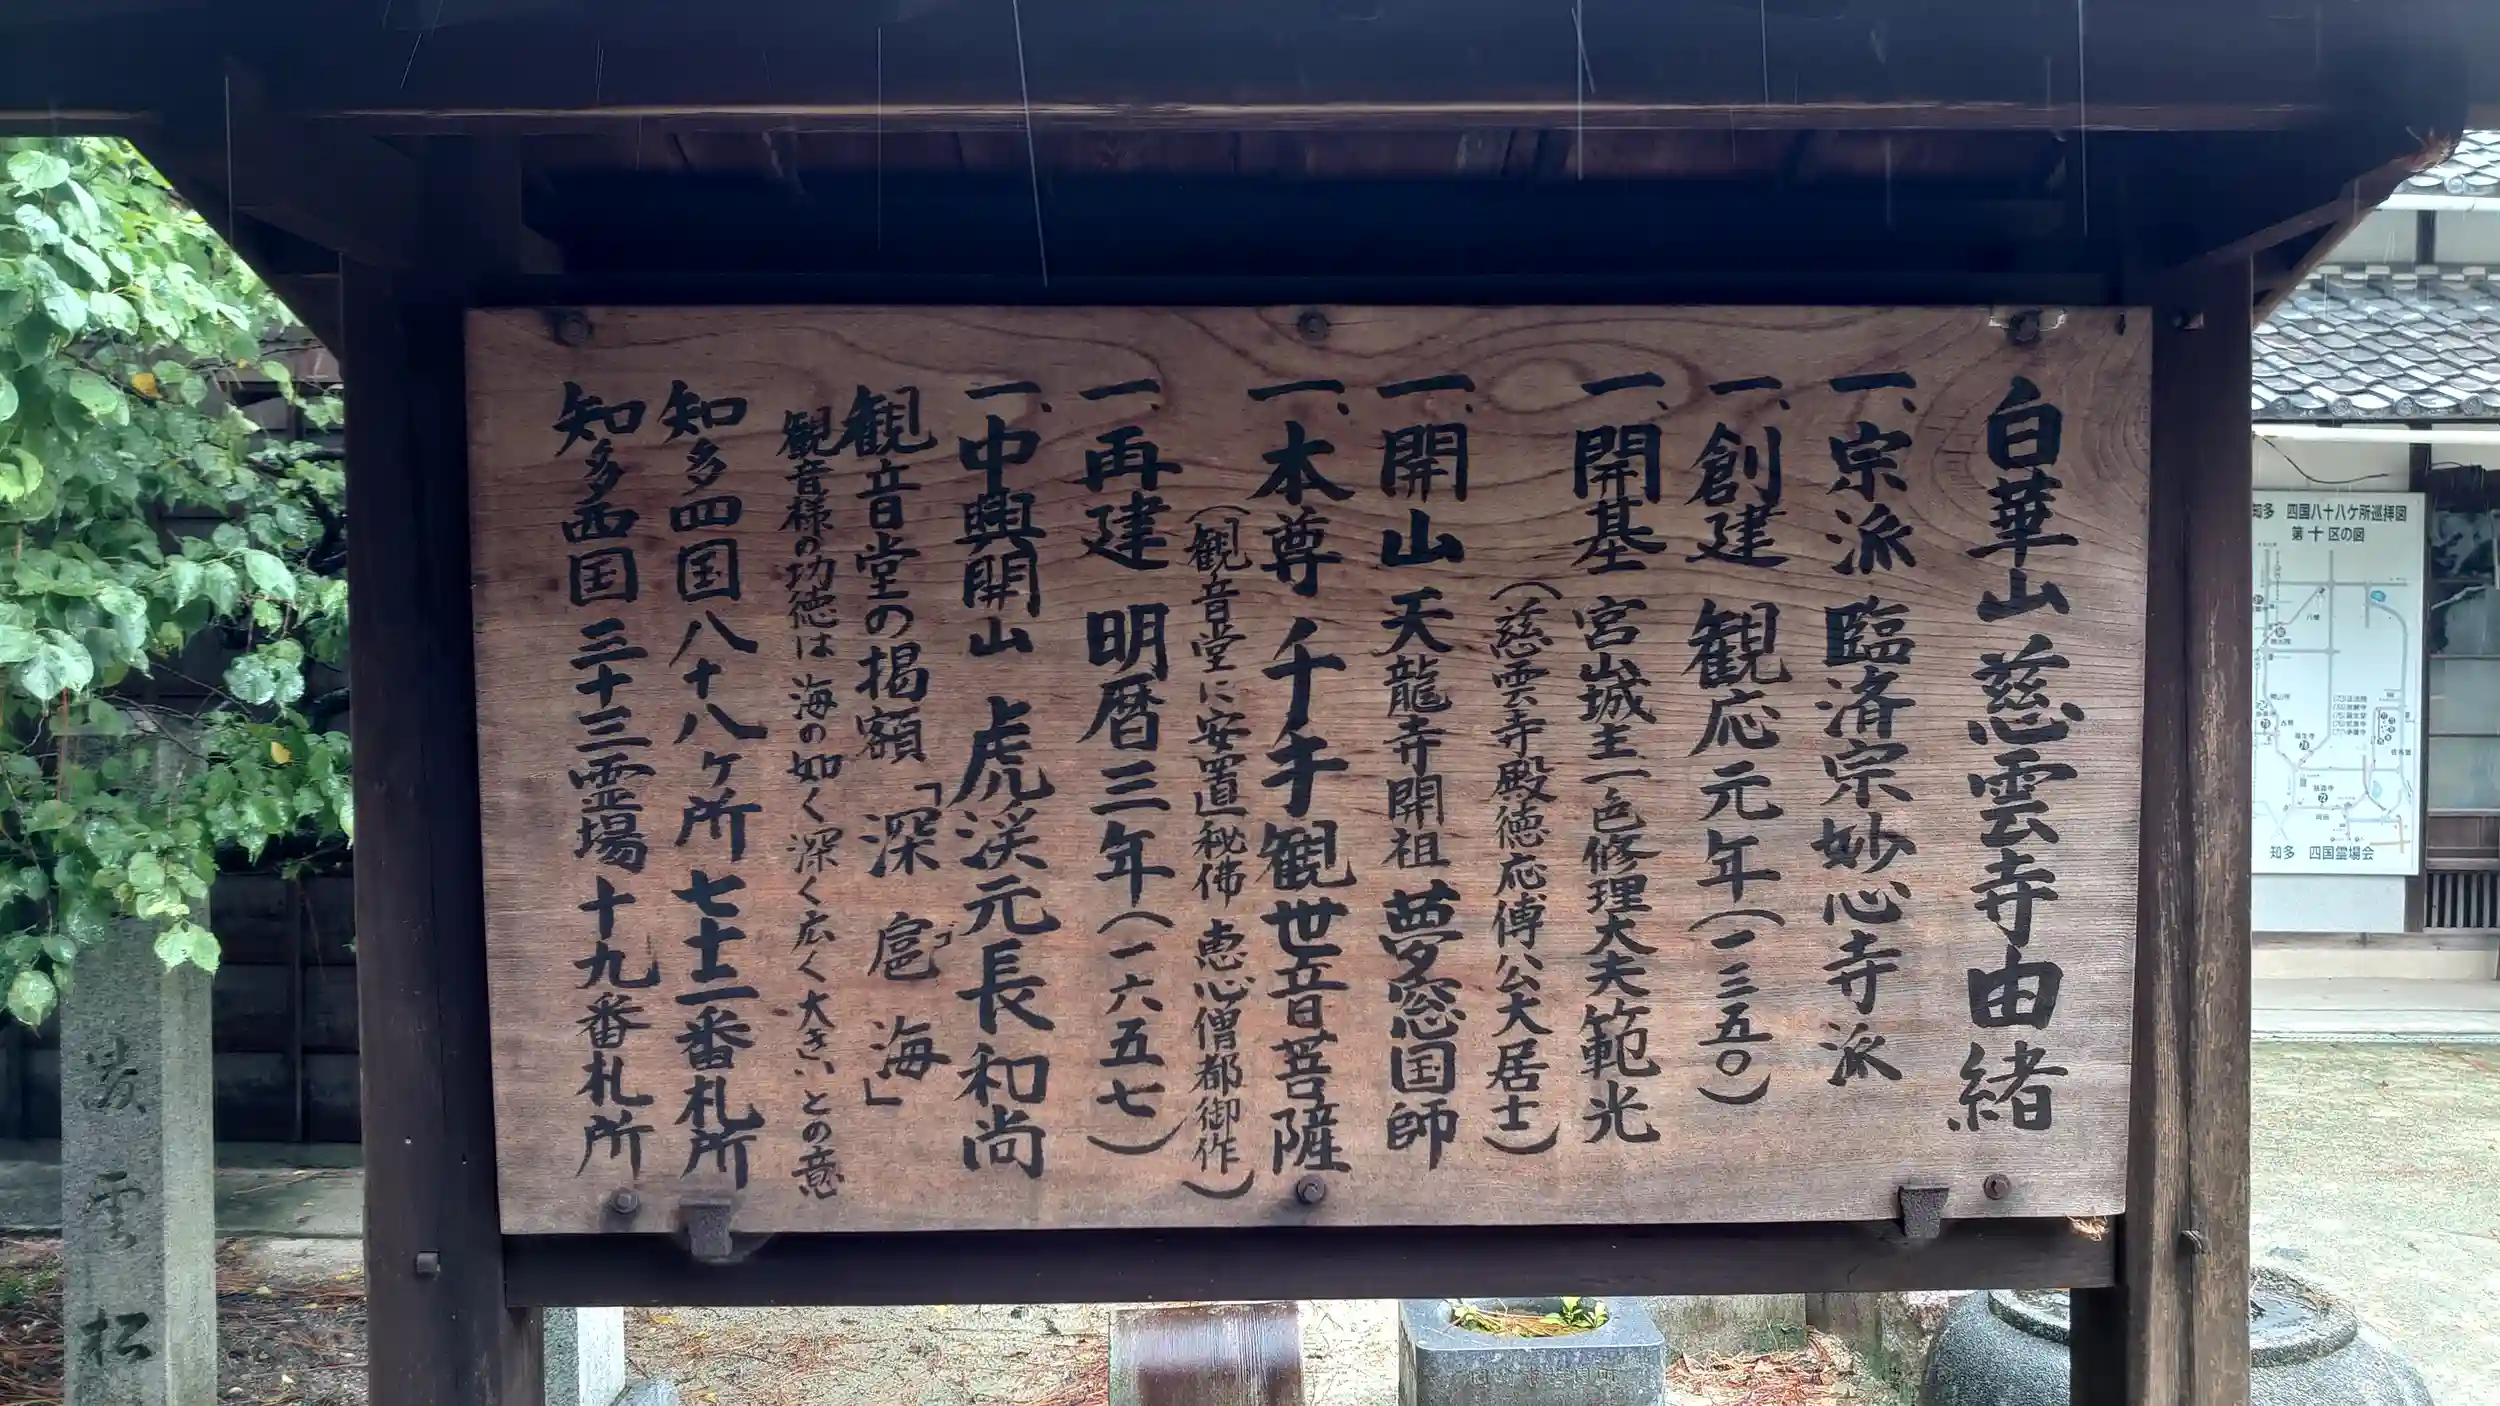 白華山慈雲寺由緒
一、宗派 臨済宗妙心寺派
一、創建 観応元年(一三五〇)
一、開基 宮山城主一色修理大夫範光
(慈雲寺殿徳応傳公大居士)
一、開山 天龍寺開祖 夢窓国師
一、本尊 千手観世音菩薩
(観音堂に安置秘佛 恵心僧都御作)
一、再建 明暦三年(一六五七)
一、中興開山 虎渓元長和尚
観音堂の掲額「深 扈 海」
コ
観音様の功徳は海の如く深く広く大きいとの意
知多四国八十八ヶ所七十二番札所
知多西国三十三霊場十九番札所
知多 四国八十八ケ所巡拝図
第十区の図
知多 四国霊場会
雲
松